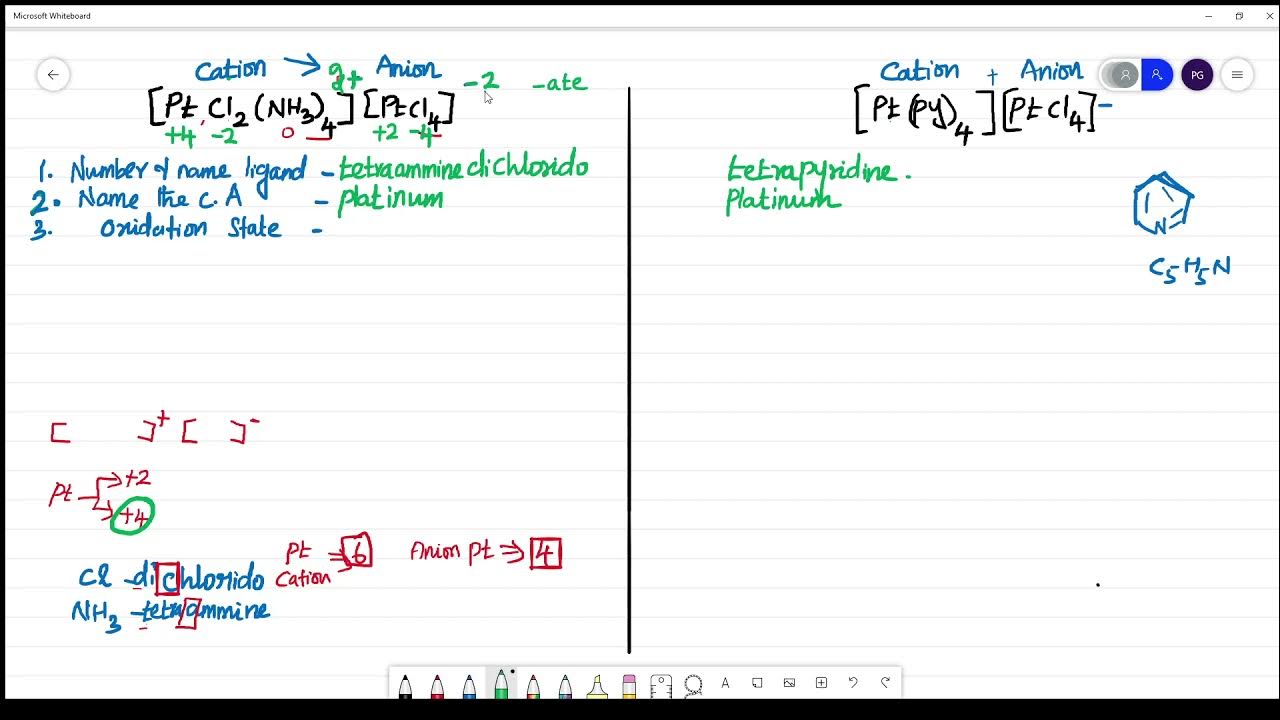 Microsoft Whiteboard
PG
Cation → 2+ Anion -2 -ate
[Pt Cl2 (NH3)4] [PtCl4]
+4 -2 0 +2 -4
1. Number & name ligand - tetraamminedichlorido
2. Name the C.A - platinum
3. Oxidation state -
[ ]+ [ ]-
Pt → +2
→ +4
Pt Cation ⇒ 6
Anion Pt ⇒ 4
Cl - dichlorido
NH3 - tetraammine
Cation + Anion
[Pt(Py)4] [PtCl4]-
tetrapyridine.
Platinum
N
C5H5N
A